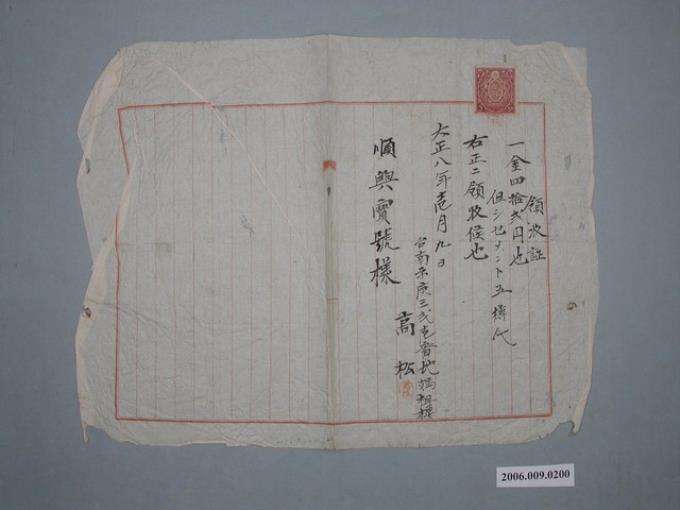 領收証
一金四拾弐円也
但シセメント五樽代
右正ニ領收候也
大正八年壱月九日
台南市
番地
高松
順興寶號樣
2006.009.0200